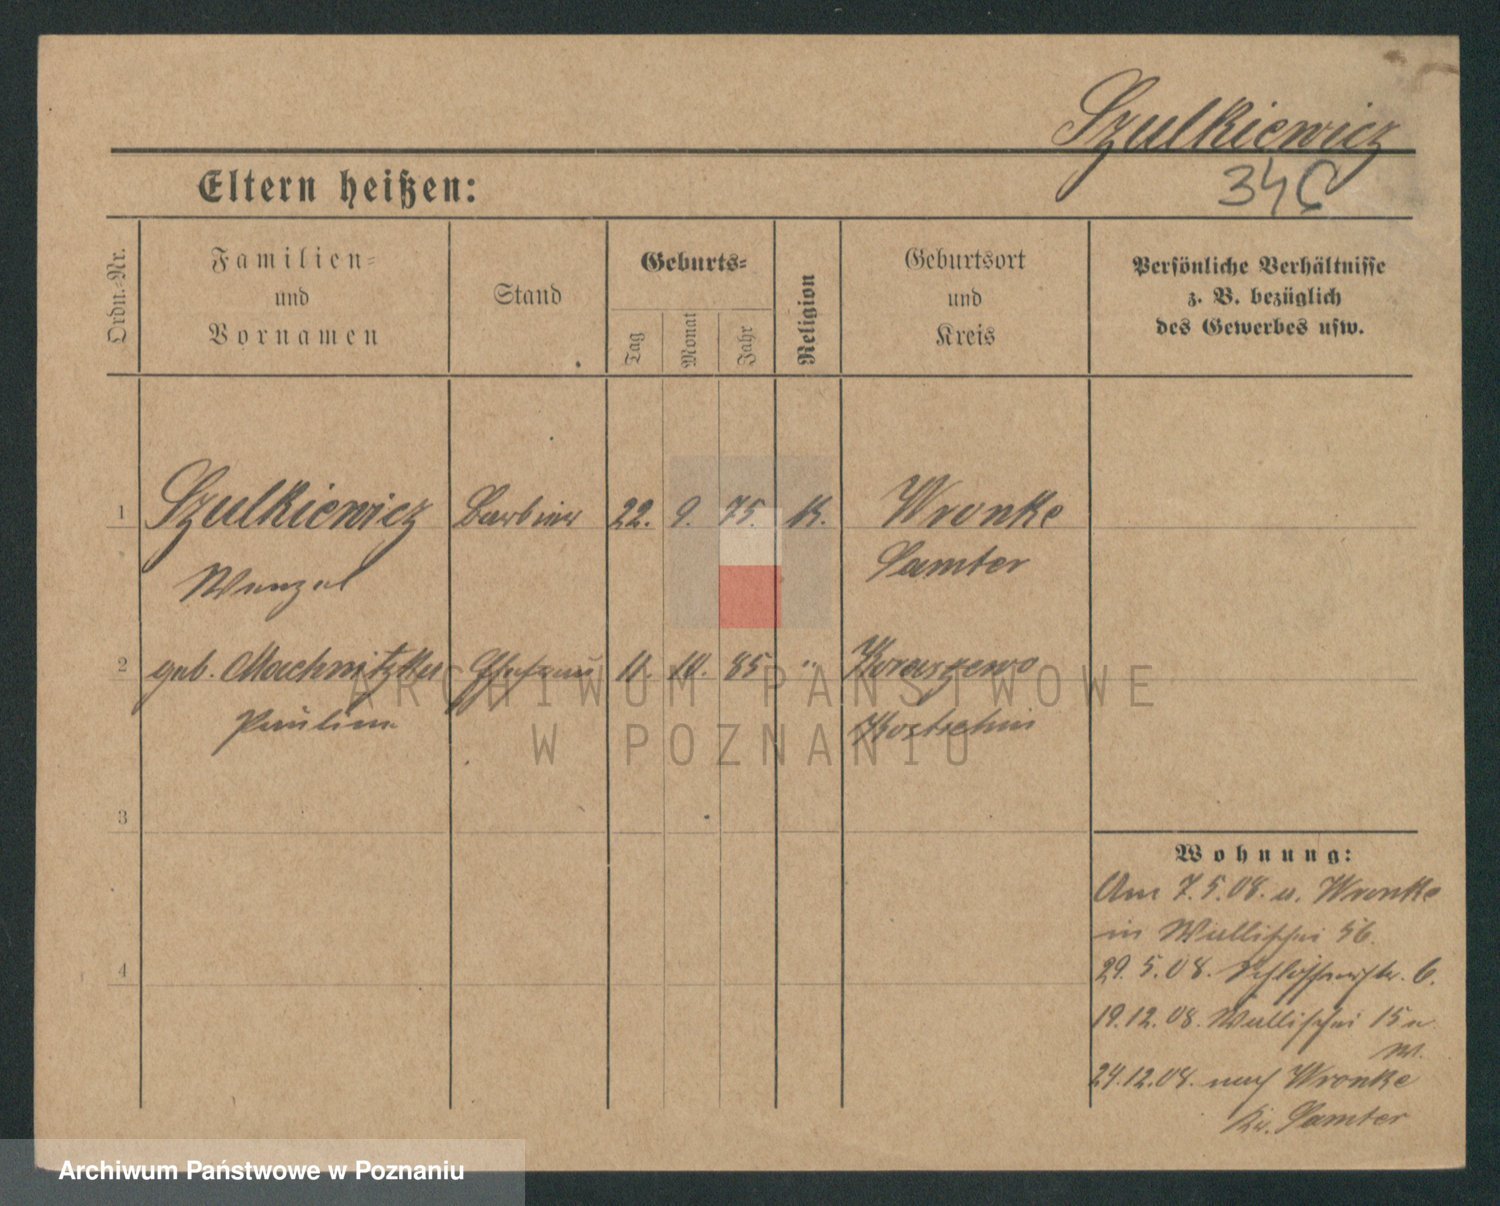 Szulkiewicz
Eltern heißen:
34
Ordn.-Nr.
Familien-
und
Vornamen
Stand
Geburts-
Tag
Monat
Jahr
Religion
Geburtsort
und
Kreis
Persönliche Verhältnisse
z. B. bezüglich
des Gewerbes usw.
1 Szulkiewicz Barbier 22. 9. 75. K. Wronke
Wenzel Samter
2 geb. Machnitzka Ehefrau 11. 10. 85 "
Pauline Kostschin
3
4
Wohnung:
Am 7.5.08. v. Wronke
in Wallischei 56.
29.5.08. Schlosserstr. 6.
19.12.08. Wallischei 15
24.12.08. nach Wronke
Kr. Samter
ARCHIWUM PAŃSTWOWE
W POZNANIU
Archiwum Państwowe w Poznaniu